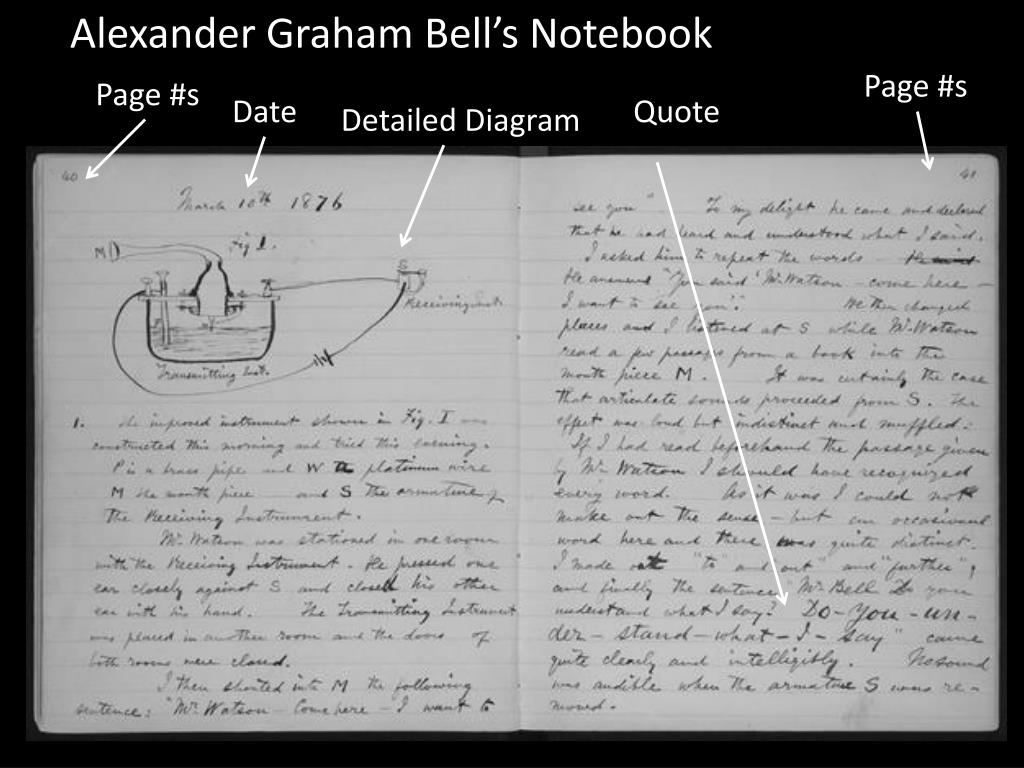 Alexander Graham Bell’s Notebook
Page #s
Date
Detailed Diagram
Quote
Page #s
40
March 10th 1876
Fig 1.
M
S
Receiving Inst.
Transmitting Inst.
1. The improved instrument shown in Fig. I was
constructed this morning and tried this evening.
P is a brass pipe and W the platinum wire
M the mouth piece and S the armature of
the Receiving Instrument.
Mr. Watson was stationed in one room
with the Receiving Instrument. He pressed one
ear closely against S and closed his other
ear with his hand. The Transmitting Instrument
was placed in another room and the doors of
both rooms were closed.
I then shouted into M the following
sentence: "Mr. Watson – Come here – I want to
41
see you". To my delight he came and declared
that he had heard and understood what I said.
I asked him to repeat the words –
He answered "You said 'Mr. Watson – come here –
I want to see you'." We then changed
places and I listened at S while Mr. Watson
read a few passages from a book into the
mouth piece M. It was certainly the case
that articulate sounds proceeded from S. The
effect was loud but indistinct and muffled.
If I had read beforehand the passage given
by Mr. Watson I should have recognized
every word. As it was I could not
make out the sense – but an occasional
word here and there was quite distinct.
I made out "to" and "out" and "further";
and finally the sentence "Mr. Bell Do you
understand what I say? Do-you-un-
der-stand-what-I-say" came
quite clearly and intelligibly. No sound
was audible when the armature S was re-
moved.